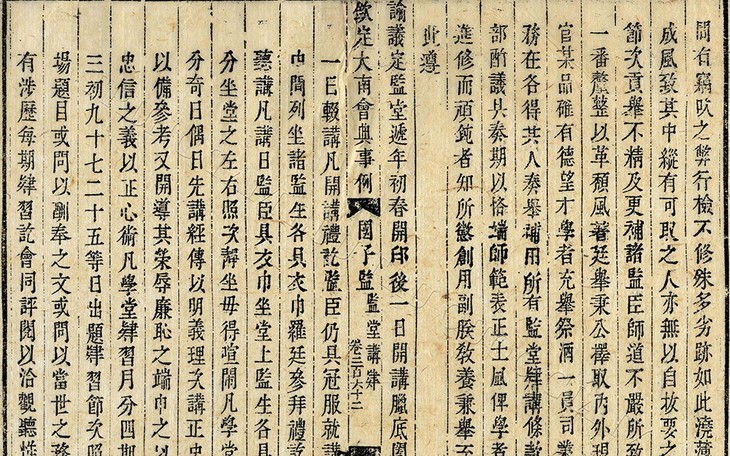 間有竊吹之弊行檢不修殊多劣跡如此澆
成風致其中縱有可取之人亦無以自拔要之
節次貢舉不精及更補諸監臣師道不嚴所致
一番釐整以革頹風著廷舉秉公擇取內外現
官某品確有德望才學者充舉祭酒一員司業
務在各得其人奏舉補用所有監堂肄講條款
部酌議具奏期以恪端師範表正士風俾學者
進修而頑鈍者知所懲創用副朕教養秉舉至
此遵
諭議定監堂遞年初春開印後一日開講臘底
欽定大南會典事例 國子監 監堂講肄 卷二百六十二
一曰輟講凡開講禮訖監臣仍具冠服就講
中間列坐諸監生各具衣巾羅廷參拜禮訖
聽講凡講日監臣具衣巾坐堂上監生各具
分坐堂之左右照次序坐毋得喧鬧凡學堂
分奇日偶日先講經傳以明義理次講正史
以備參考又開導其榮辱廉恥之端巾之以
忠信之義以正心術凡學堂肄習月分四期
三初九十七二十五等日出題肄習節次照
場題目或問以酬奉之文或問以當世之務
有涉歷每期肄習訖會同評閱以洽觀聽